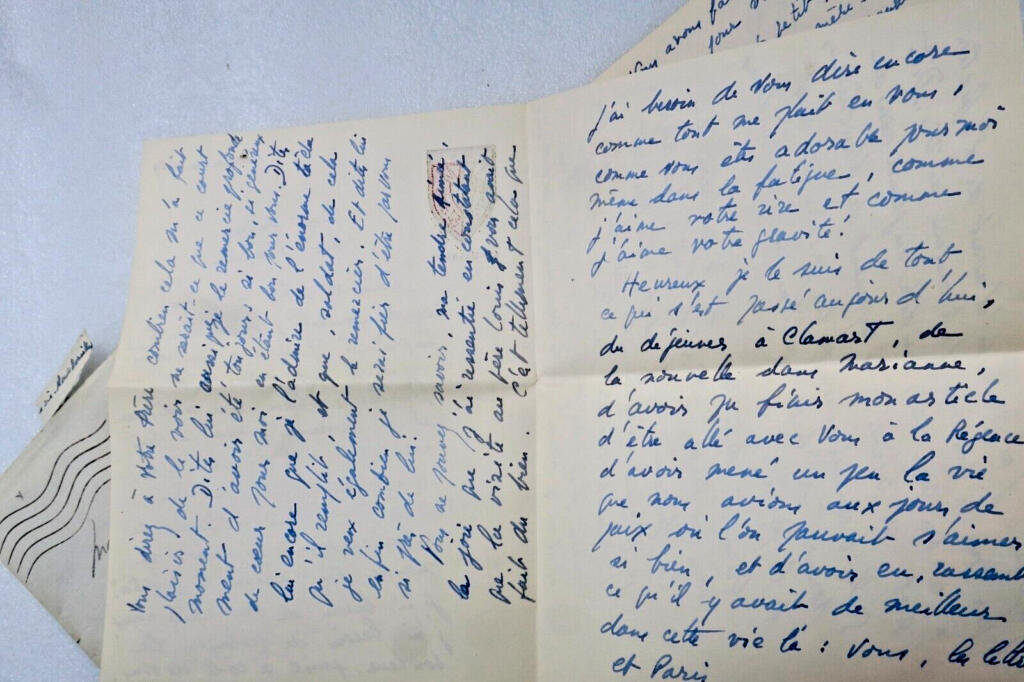 Vous direz à votre frère combien cela m'a fait
plaisir de le voir, ne serait-ce que ce court
moment. Dites lui aussi que je le remercie profondé
ment d'avoir été toujours si bon, si généreux
de cœur pour moi en étant bon pour vous. Dites
lui encore que je l'admire de l'énorme tâche
qu'il remplit et que, soldat, de cela
je veux également le remercier. Et dites lui
enfin combien je serai fier d'être
si près de lui.
Vous ne pouvez savoir, ma tendre aimée,
la joie que j'ai ressentie en constatant
que la visite au père Louis vous avait
fait du bien. C'est tellement cela que
avons
pour
petit
mère
j'ai besoin de vous dire encore
comme tout me plait en vous,
comme vous êtes adorable pour moi
même dans la fatigue, comme
j'aime votre rire et comme
j'aime votre gravité!
Heureux je le suis de tout
ce qui s'est passé aujourd'hui,
du déjeuner à Clamart, de
la nouvelle dans Marianne,
d'avoir pu finir mon article
d'être allé avec Vous à la Régence
d'avoir mené un peu la vie
que nous avions aux jours de
paix où l'on pouvait s'aimer
si bien, et d'avoir eu, rassemb
ce qu'il y avait de meilleur
dans cette vie là : Vous, les lettr
et Paris